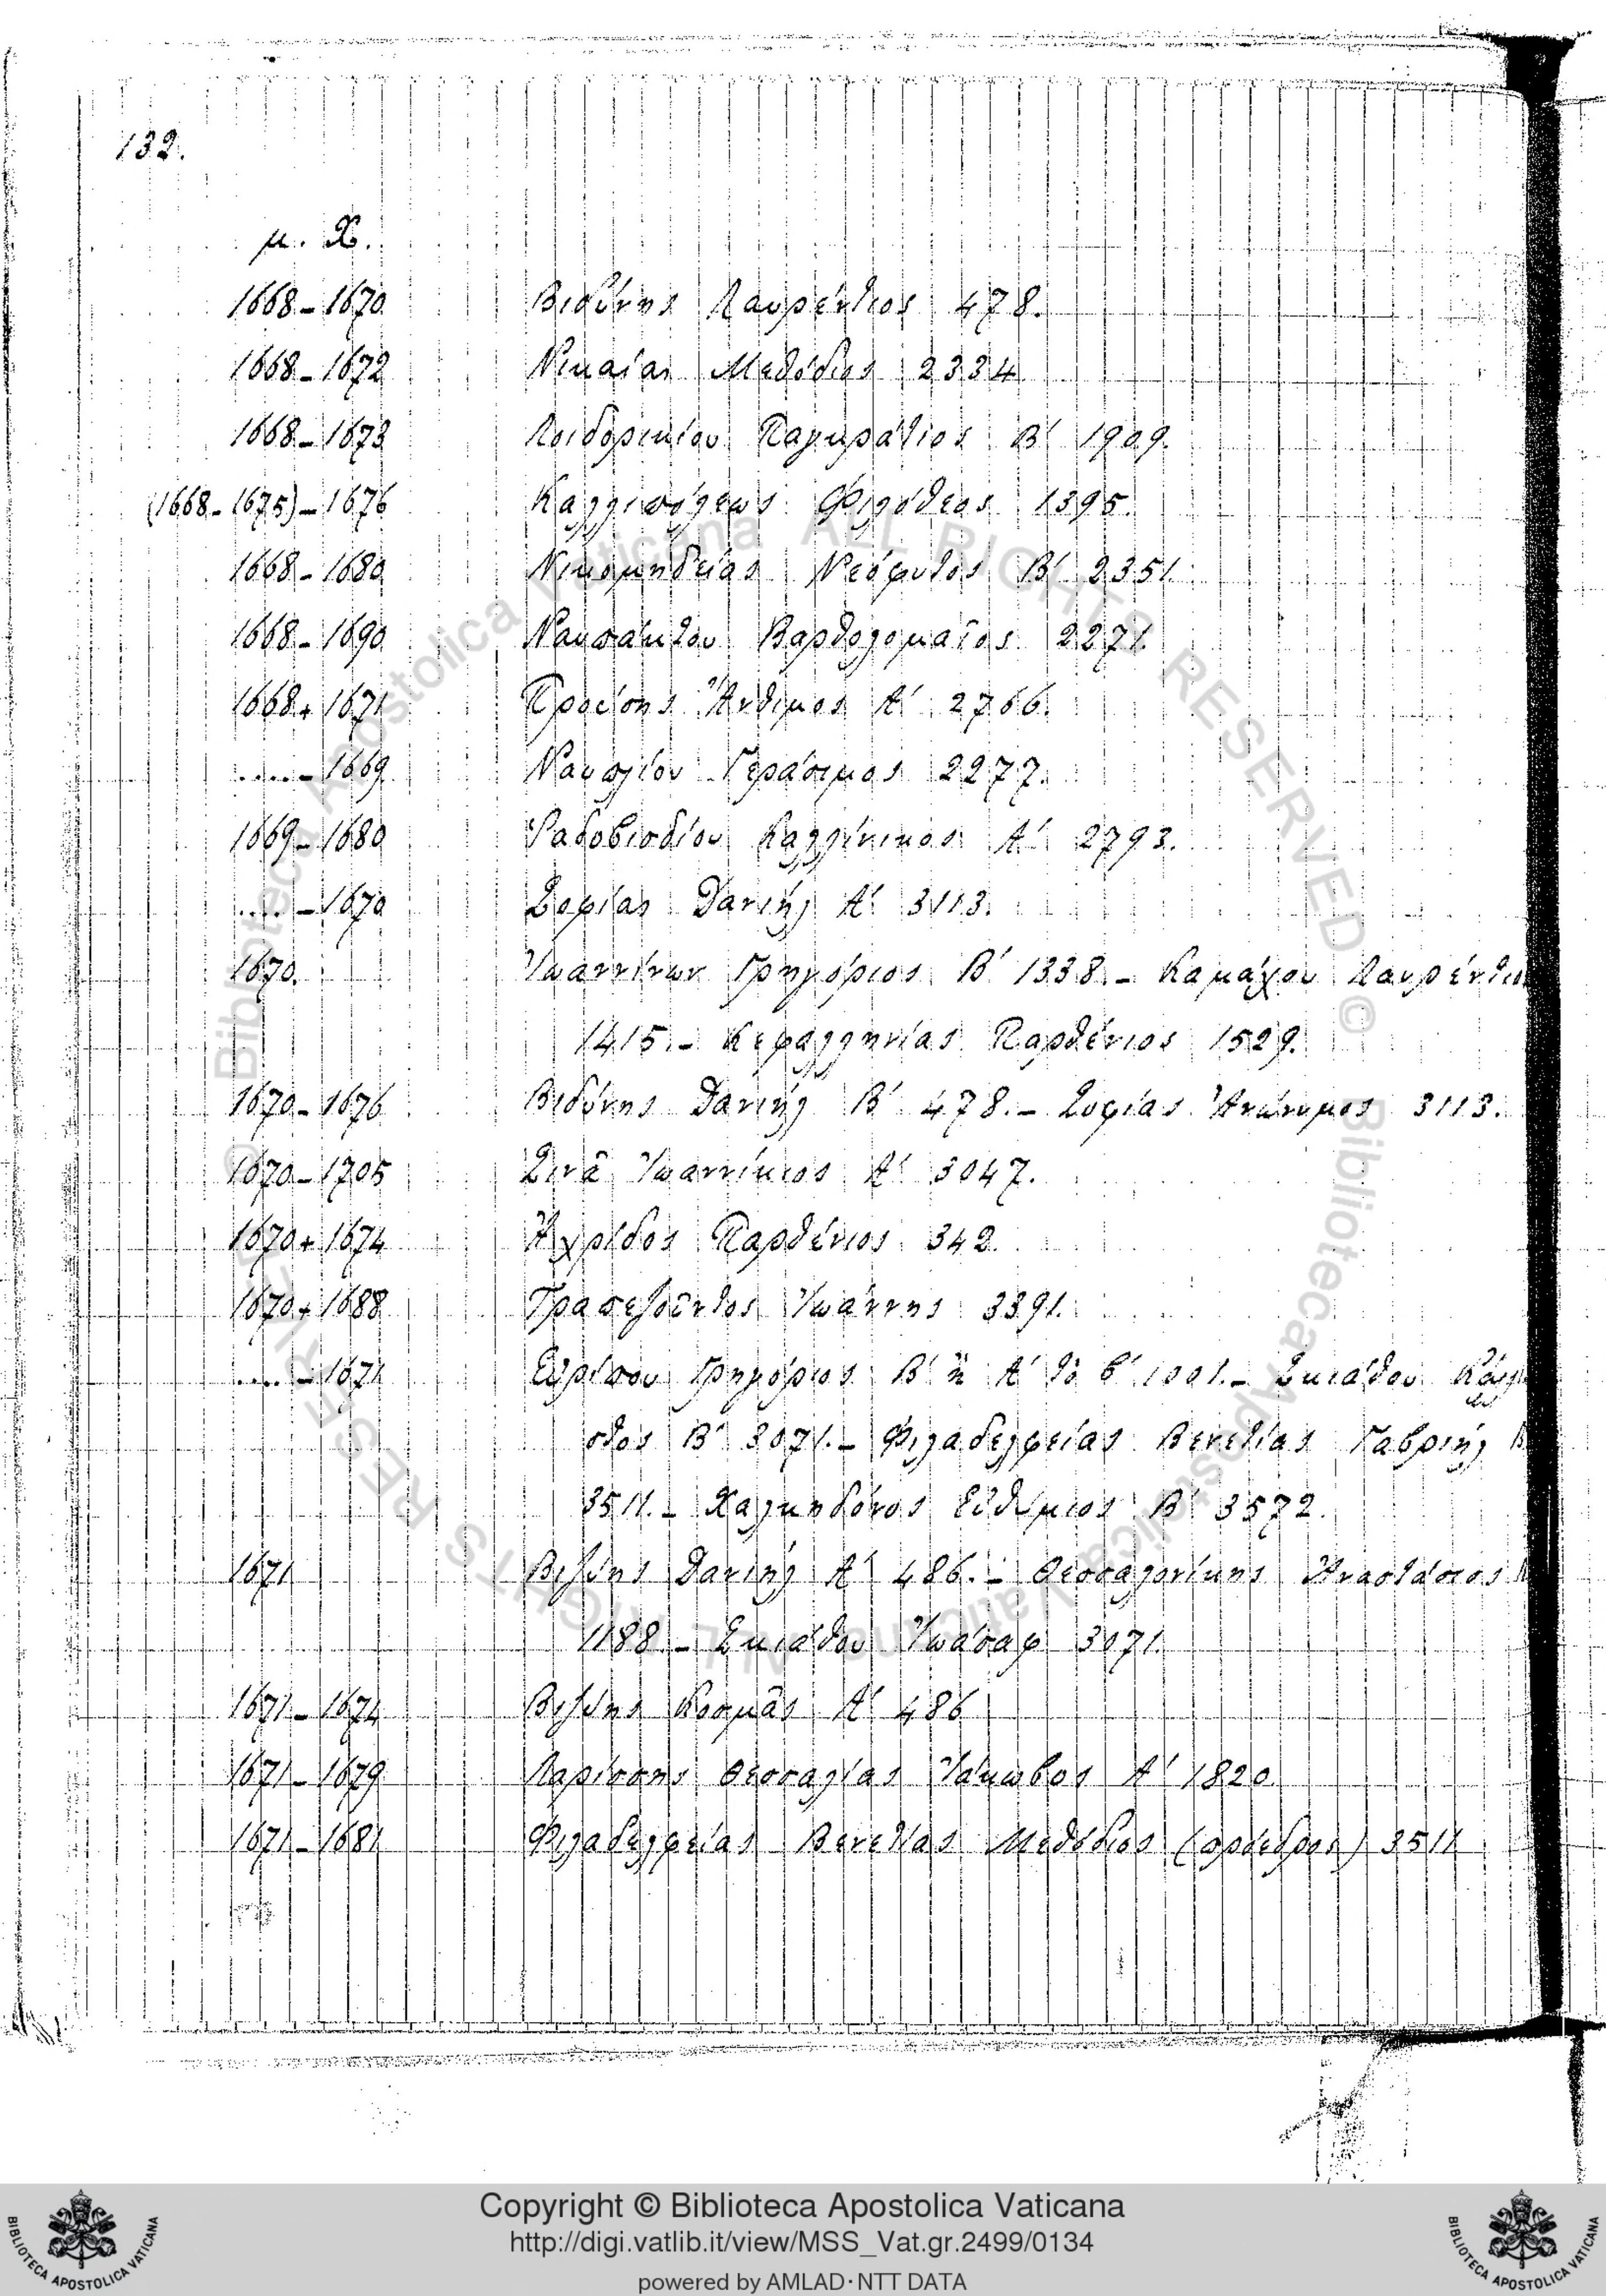 132.
μ. Χ.
1668 - 1670 Βιδύνης Λαυρέντιος 478.
1668 - 1672 Νικαίας Μεθόδιος 2334
1668 - 1673 Λοιδορικίου Παγκράτιος Β΄ 1909.
(1668 - 1675) - 1676 Καλλιπόλεως Φιλόθεος 1395.
1668 - 1680 Νικομηδείας Νεόφυτος Β΄ 2351.
1668 - 1690 Ναυπάκτου Βαρθολομαῖος 2271.
1668 + 1671 Προύσης Ἄνθιμος Α΄ 2766.
..... - 1669 Ναυπλίου Γεράσιμος 2277.
1669 - 1680 Ῥαδοβισδίου Καλλίνικος Α΄ 2793.
..... - 1670 Σοφίας Δανιήλ Α΄ 3113.
1670. Ἰωαννίνων Γρηγόριος Β΄ 1338. - Καμάχου Λαυρέντιο
1415. - Κεφαλληνίας Παρθένιος 1529.
1670 - 1676 Βιδύνης Δανιήλ Β΄ 478. - Σοφίας Ἀνώνυμος 3113.
1670 - 1705 Σινᾶ Ἰωαννίκιος Α΄ 3047.
1670 + 1674 Ἀχρίδος Παρθένιος 342.
1670 + 1688 Τραπεζοῦντος Ἰωάννης 3391.
..... - 1671 Εὐρίπου Γρηγόριος Β΄ ἢ Α΄ τὸ β΄ 1001. - Σκιάθου
στος Β΄ 3071. - Φιλαδελφείας Βενετίας Γαβριήλ
3511. - Χαλκηδόνος Εὐθύμιος Β΄ 3572.
1671 Βιζύης Δανιήλ Α΄ 486. - Θεσσαλονίκης Ἀναστάσιος
1188 - Σκιάθου Ἰωάσαφ 3071.
1671 - 1674 Βιζύης Κοσμᾶς Α΄ 486
1671 - 1679 Λαρίσσης Θεσσαλίας Ἰάκωβος Α΄ 1820.
1671 - 1681 Φιλαδελφείας Βενετίας Μεθόδιος (πρόεδρος) 3511
© Biblioteca Apostolica Vaticana ALL RIGHTS RESERVED © Biblioteca Apostolica Vaticana ALL RIGHTS RESERVED
Copyright © Biblioteca Apostolica Vaticana
http://digi.vatlib.it/view/MSS_Vat.gr.2499/0134
powered by AMLAD·NTT DATA
BIBLIOTECA APOSTOLICA VATICANA
BIBLIOTECA APOSTOLICA VATICANA